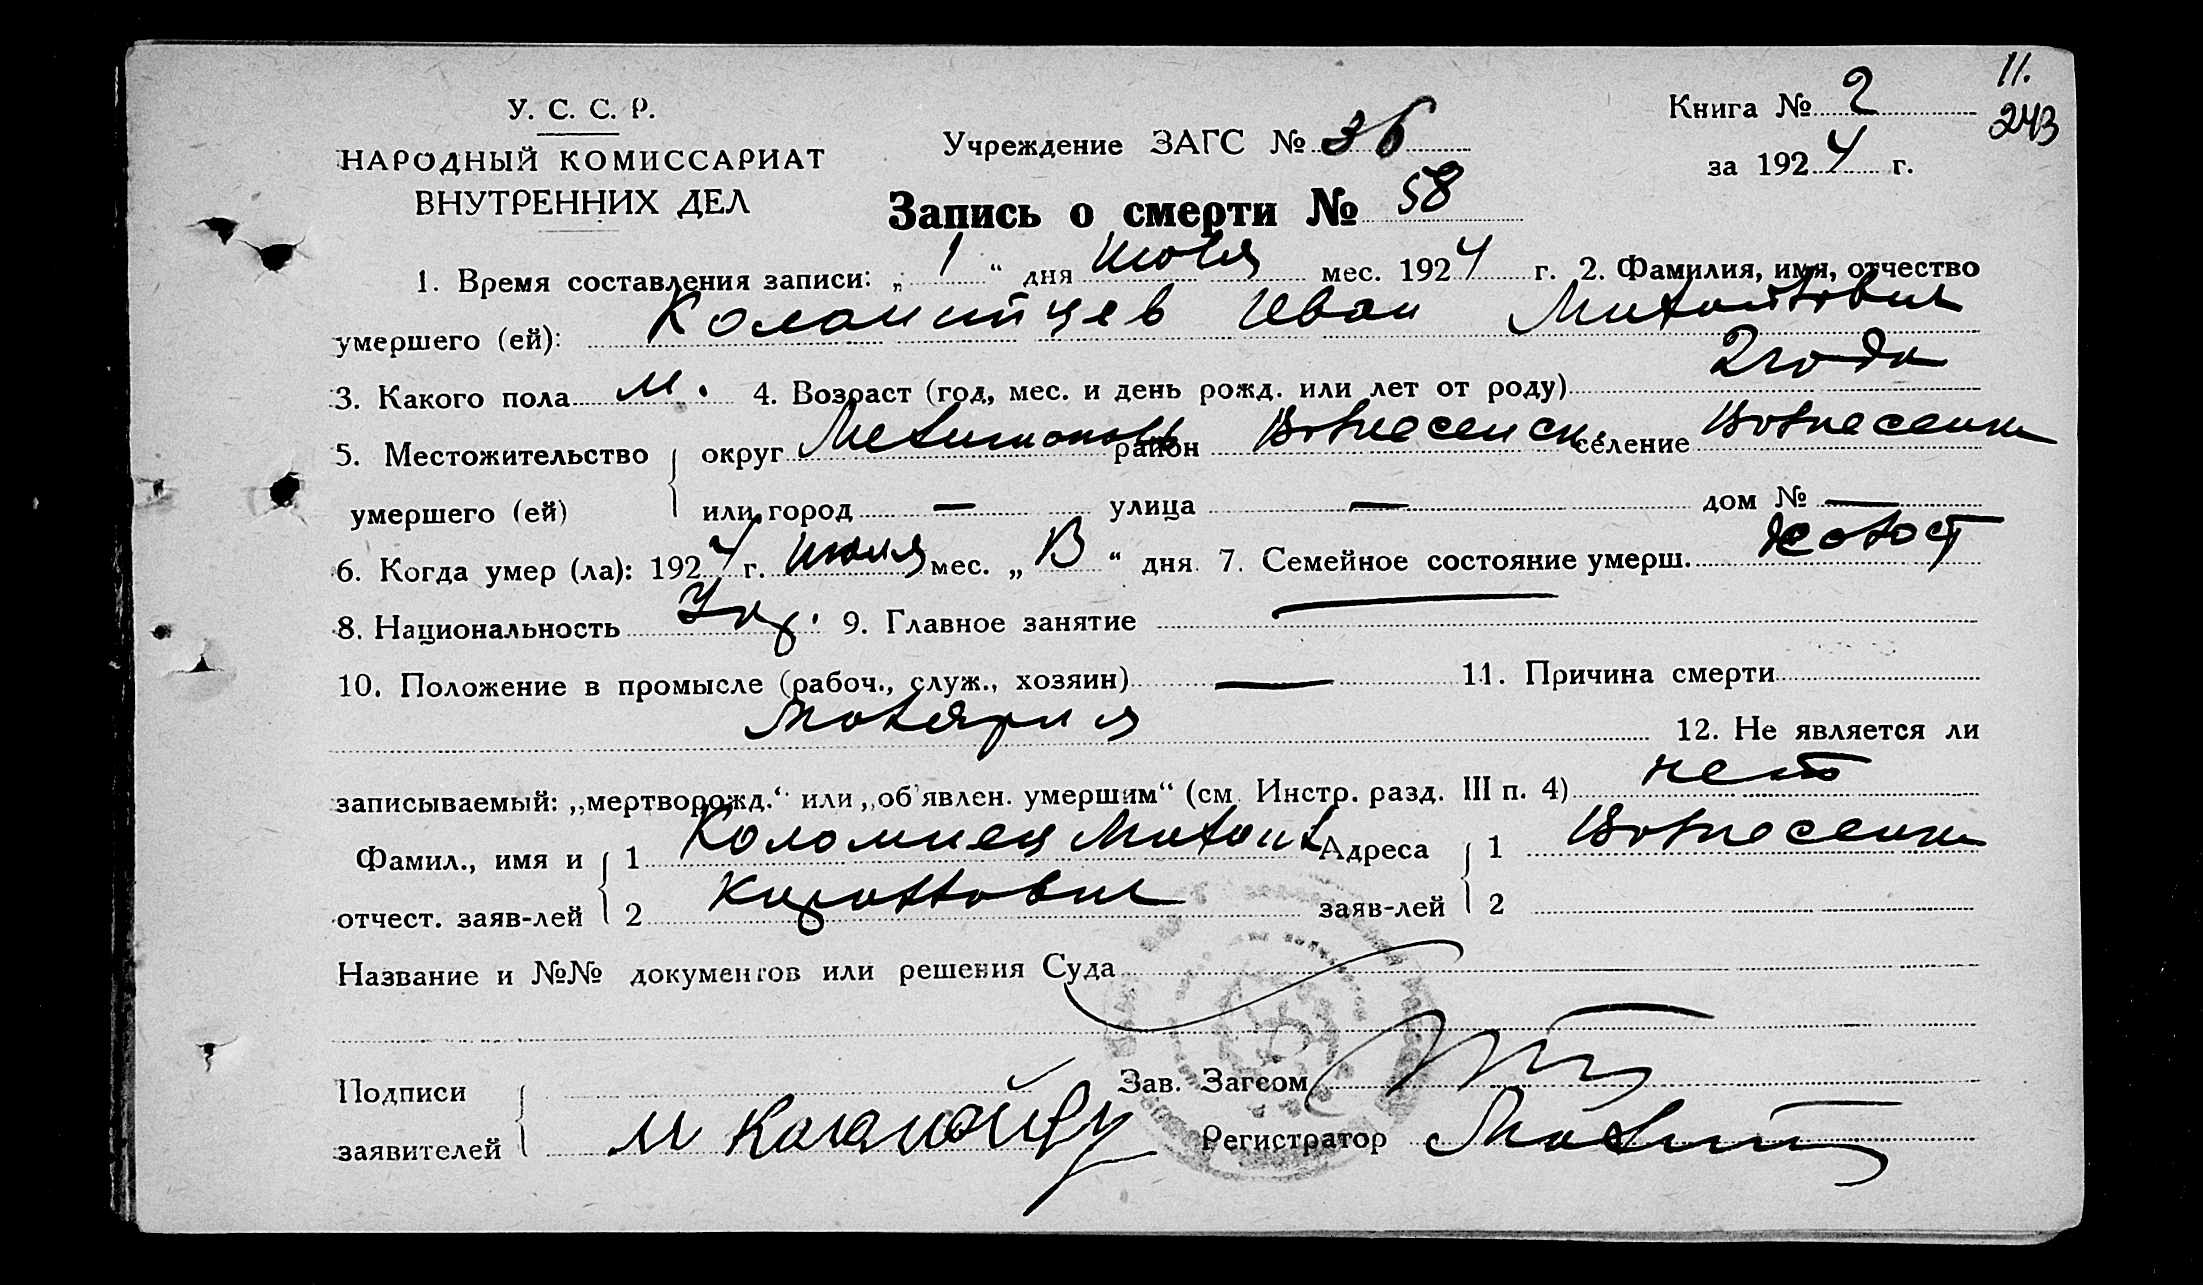 11.
243
У. С. С. Р.
НАРОДНЫЙ КОМИССАРИАТ
ВНУТРЕННИХ ДЕЛ
Учреждение ЗАГС № 36
Книга № 2
за 1924 г.
Запись о смерти № 58
1. Время составления записи: „ 1 “ дня Июля мес. 1924 г. 2. Фамилия, имя, отчество
умершего (ей): Иван Михайлович
3. Какого пола м. 4. Возраст (год, мес. и день рожд. или лет от роду) 2 года
5. Местожительство округ Мелитополь район Вознесенск селение Вознесенка
умершего (ей) или город — улица — дом № —
6. Когда умер (ла): 1924 г. Июля мес. „ “ дня 7. Семейное состояние умерш. холост
8. Национальность Укр. 9. Главное занятие —
10. Положение в промысле (рабоч., служ., хозяин) — 11. Причина смерти
Малярия 12. Не является ли
записываемый: „мертворожд.“ или „об'явлен. умершим“ (см. Инстр. разд. III п. 4) нет
Фамил., имя и 1 Коломиец Михаил Адреса 1 Вознесенка
отчест. заяв-лей 2 заяв-лей 2
Название и №№ документов или решения Суда
Подписи Зав. Загсом
заявителей М Регистратор